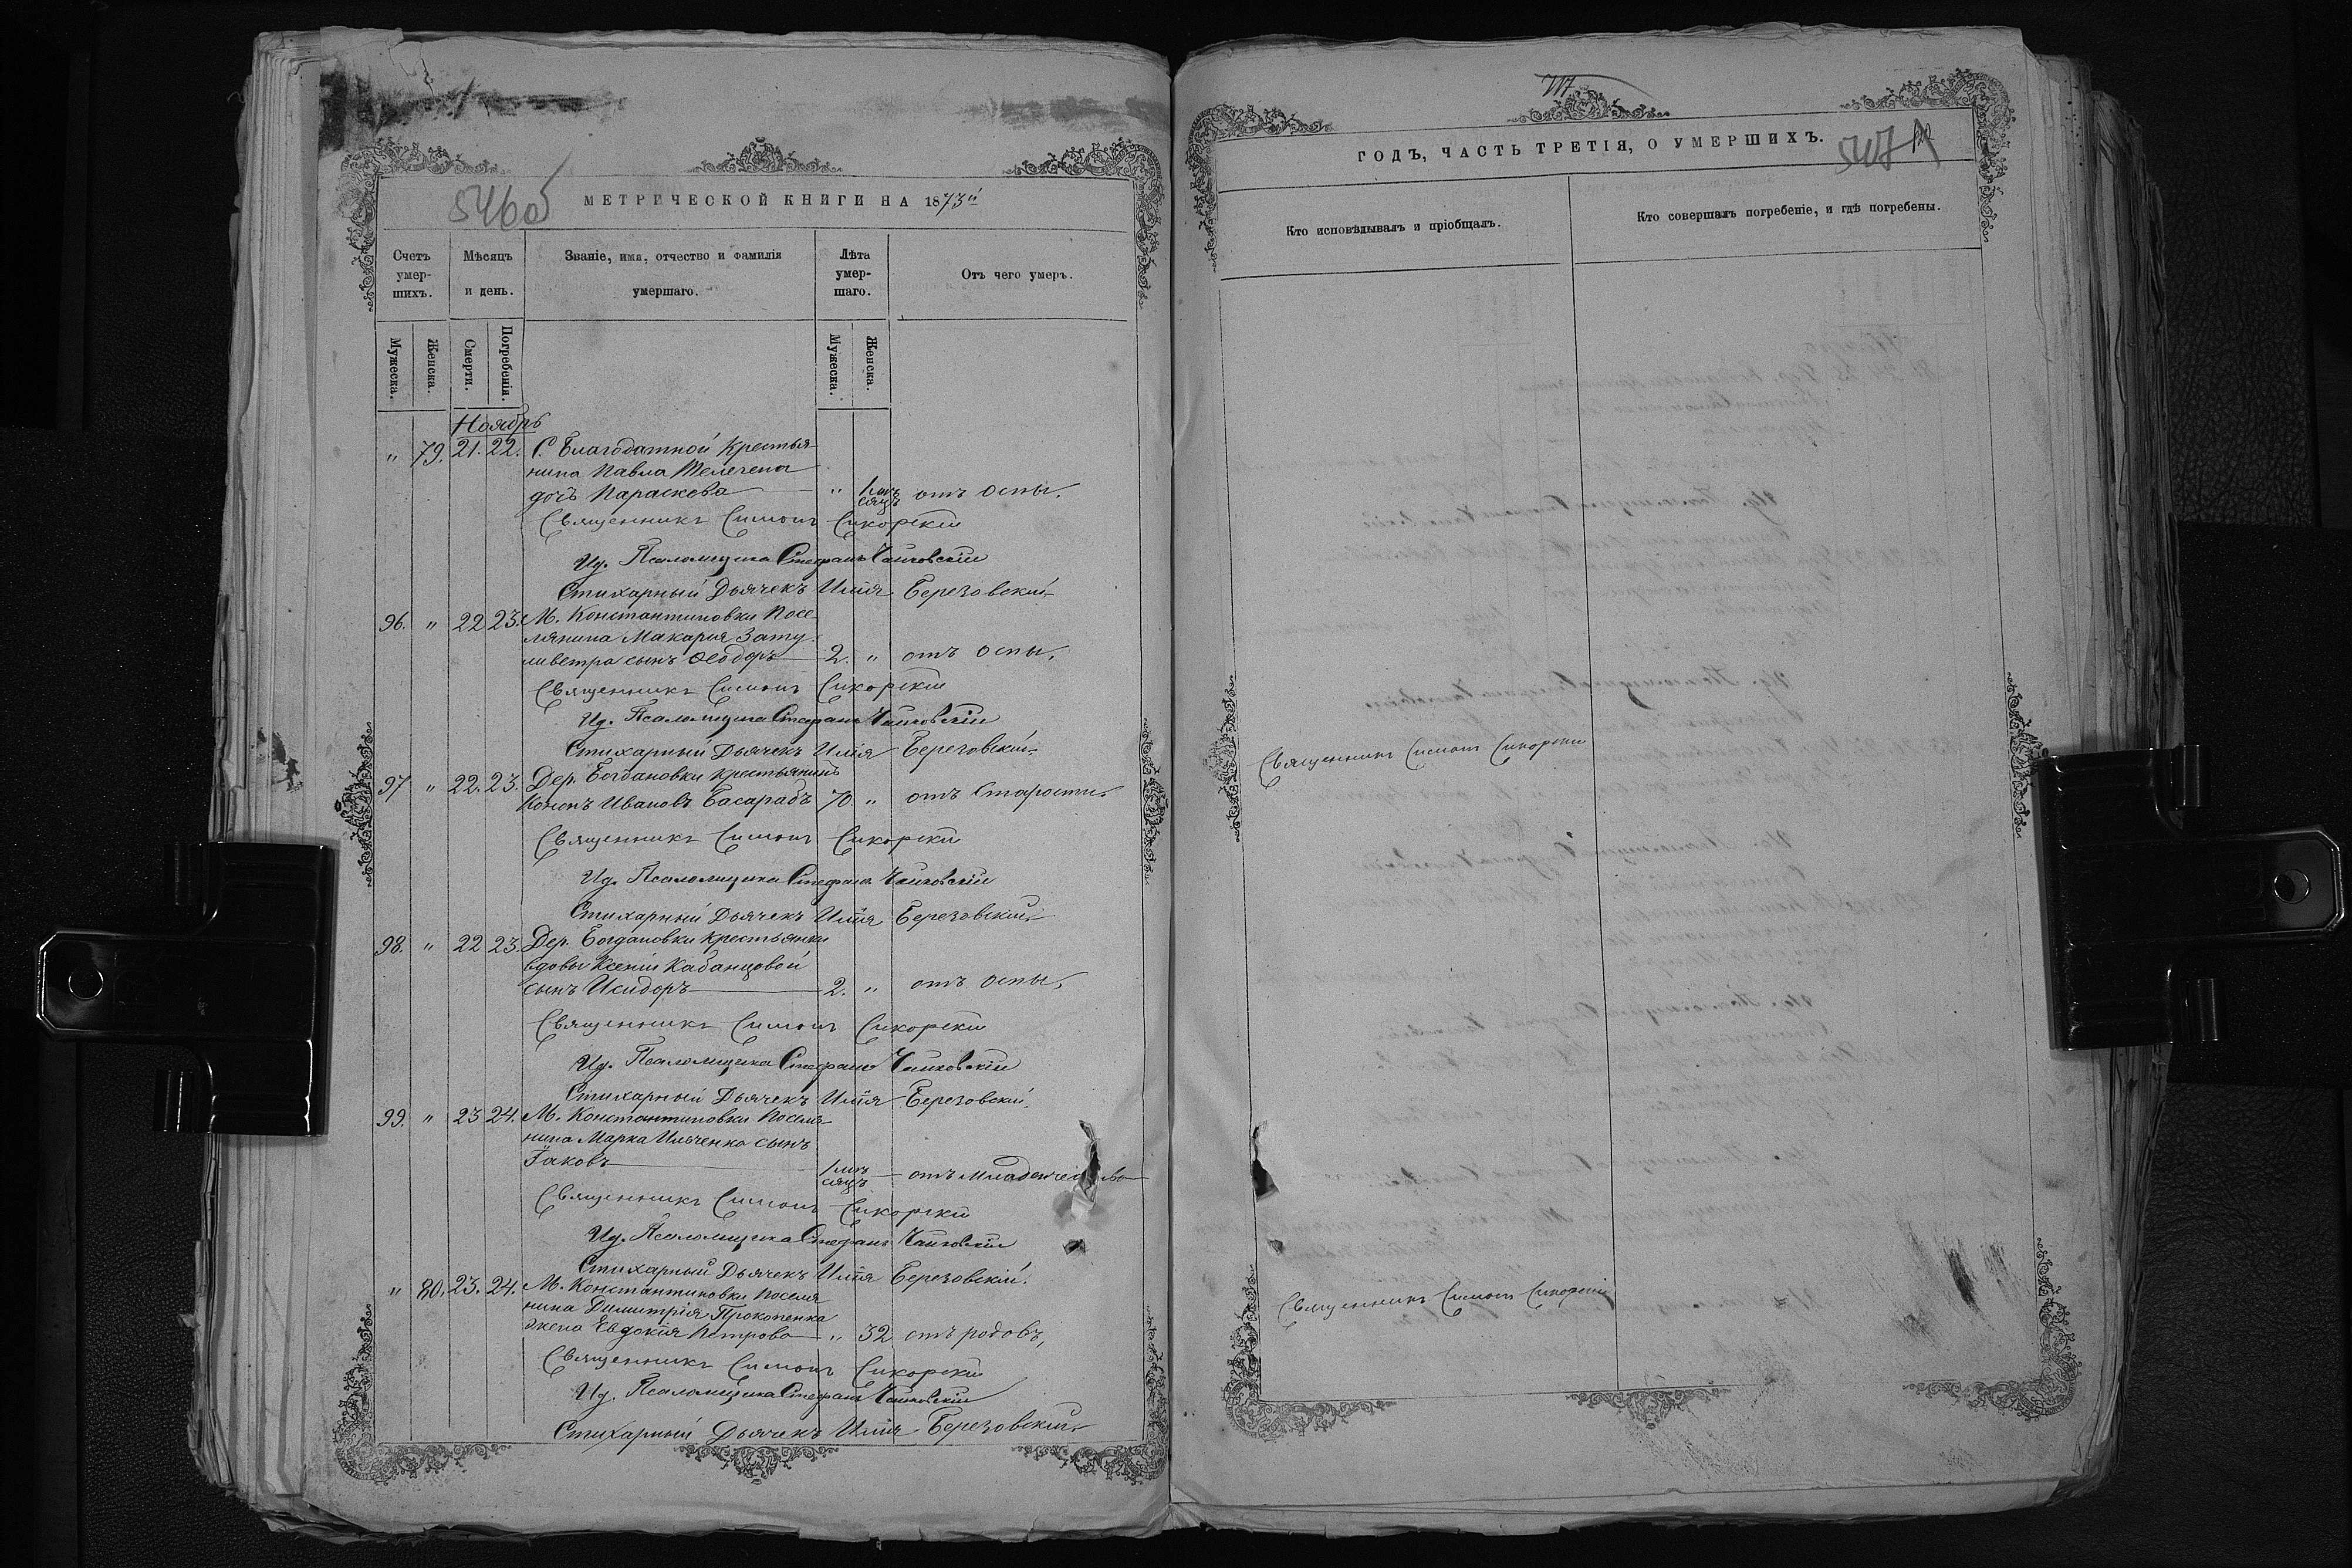 546об
МЕТРИЧЕСКОЙ КНИГИ НА 1873й
Счетъ умер-шихъ.
Мѣсяцъ и день.
Званіе, имя, отчество и фамилія умершаго.
Лѣта умер-шаго.
Отъ чего умеръ.
Мужеска.
Женска.
Смерти.
Погребенія.
Мужеска.
Женска.
Ноябрь
" 79. 21. 22. С. Благодатной Крестья-
нина Павла Телегена
дочь Параскева " 1 мѣ-сяцъ отъ оспы.
Священникъ Симонъ Сикорскій
Ид. Псаломщика Стефанъ Чайковскій
Стихарный Дьячекъ Илія Березовскій
96. " 22 23. М. Константиновки Посе-
лянина Макарія Зату-
ливетра сынъ Ѳеодоръ 2. " отъ оспы.
Священникъ Симонъ Сикорскій
Ид. Псаломщика Стефанъ Чайковскій
Стихарный Дьячекъ Илія Березовскій
97 " 22. 23. Дер. Богдановки крестьянинъ
Кононъ Ивановъ Басарабъ 70. " отъ Старости.
Священникъ Симонъ Сикорскій
Ид. Псаломщика Стефанъ Чайковскій
Стихарный Дьячекъ Илія Березовскій
98. " 22 23. Дер. Богдановки крестьянки
вдовы Ксеніи Кабанцовой
сынъ Исидоръ 2. " отъ оспы.
Священникъ Симонъ Сикорскій
Ид. Псаломщика Стефанъ Чайковскій
Стихарный Дьячекъ Илія Березовскій.
99. " 23 24. М. Константиновки Поселя-
нина Марка Ильченко сынъ
Іаковъ 1 мѣ-сяцъ отъ младенчества
Священникъ Симонъ Сикорскій
Ид. Псаломщика Стефанъ Чайковскій
Стихарный Дьячекъ Илія Березовскій.
" 80. 23. 24. М. Константиновки Поселя
нина Димитрія Прокопенка
жена Евдокія Петрова " 32 отъ родовъ,
Священникъ Симонъ Сикорскій
Ид. Псаломщика Стефанъ Чайковскій
Стихарный Дьячекъ Илія Березовскій
ГОДЪ, ЧАСТЬ ТРЕТІЯ, О УМЕРШИХЪ.
547
Кто исповѣдывалъ и пріобщалъ.
Кто совершалъ погребеніе, и гдѣ погребены.
Священникъ Симонъ Сикорскій
Священникъ Симонъ Сикорскій